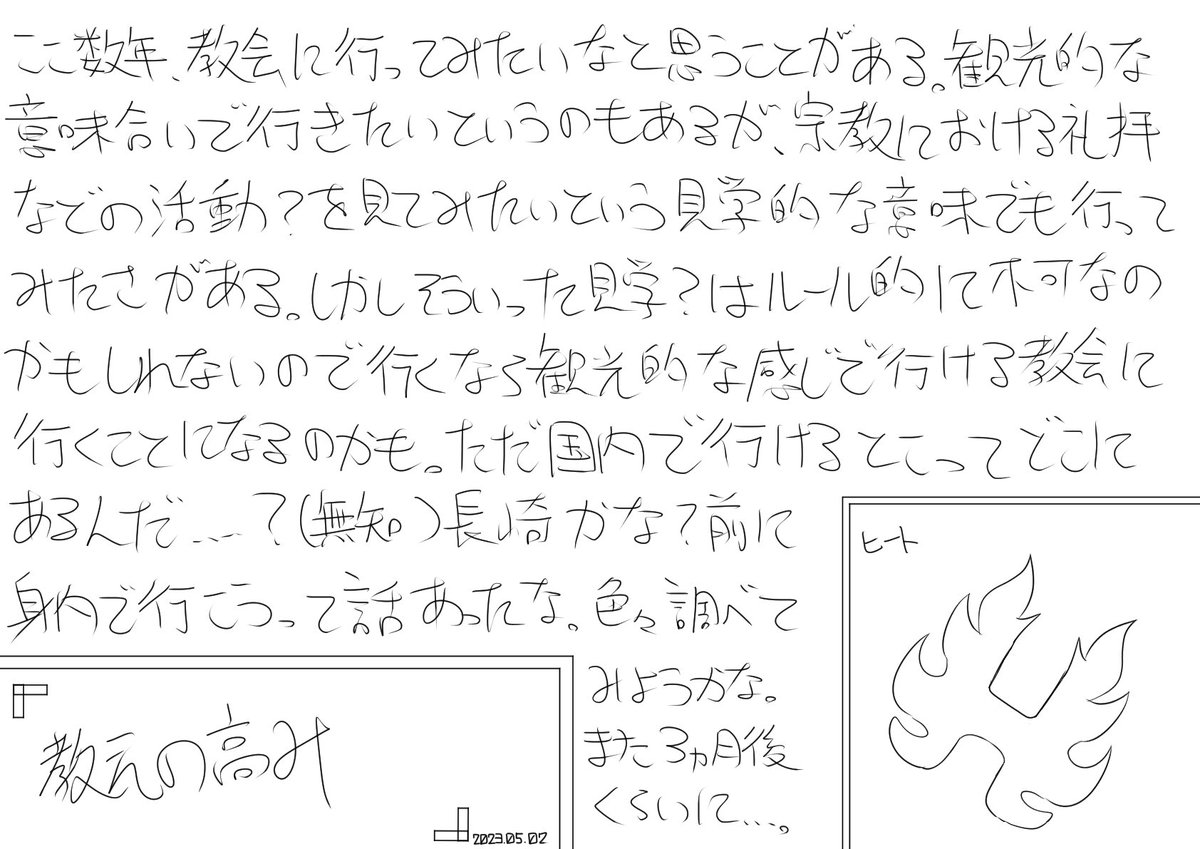 ここ数年、教会に行ってみたいなと思うことがある。観光的な
意味合いで行きたいというのもあるが、宗教における礼拝
などの活動?を見てみたいという見学的な意味でも行って
みたさがある。しかしそういった見学?はルール的に不可なの
かもしれないので行くなら観光的な感じで行ける教会に
行くことになるのかも。ただ国内で行けるとこってどこに
あるんだ……?(無知)長崎かな?前に
身内で行こうって話あったな。色々調べて
みようかな。
また3ヵ月後
くらいに…。
ヒート
教えの高み
2023.05.02